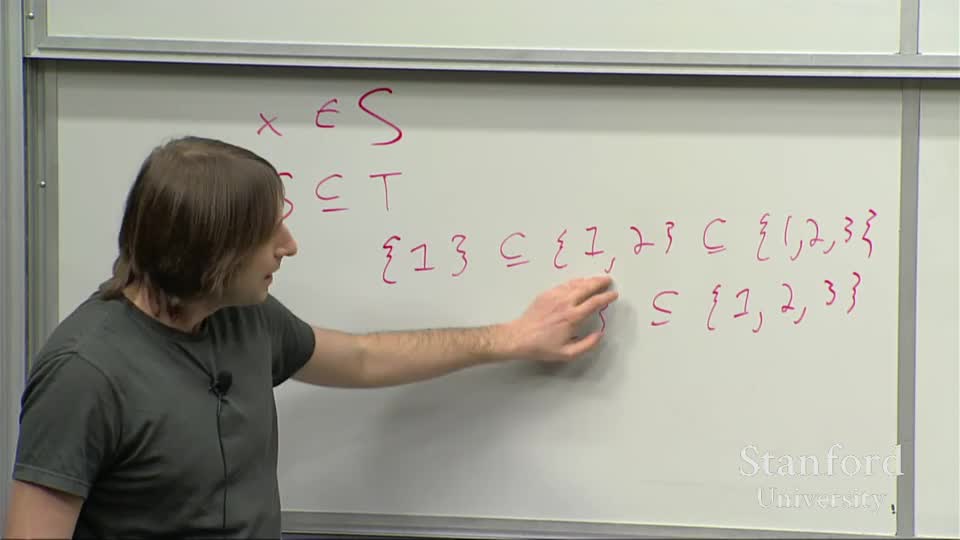 x ∈ S
S ⊆ T
{1} ⊆ {1,2} ⊆ {1,2,3}
} ⊆ {1,2,3}
Stanford
University